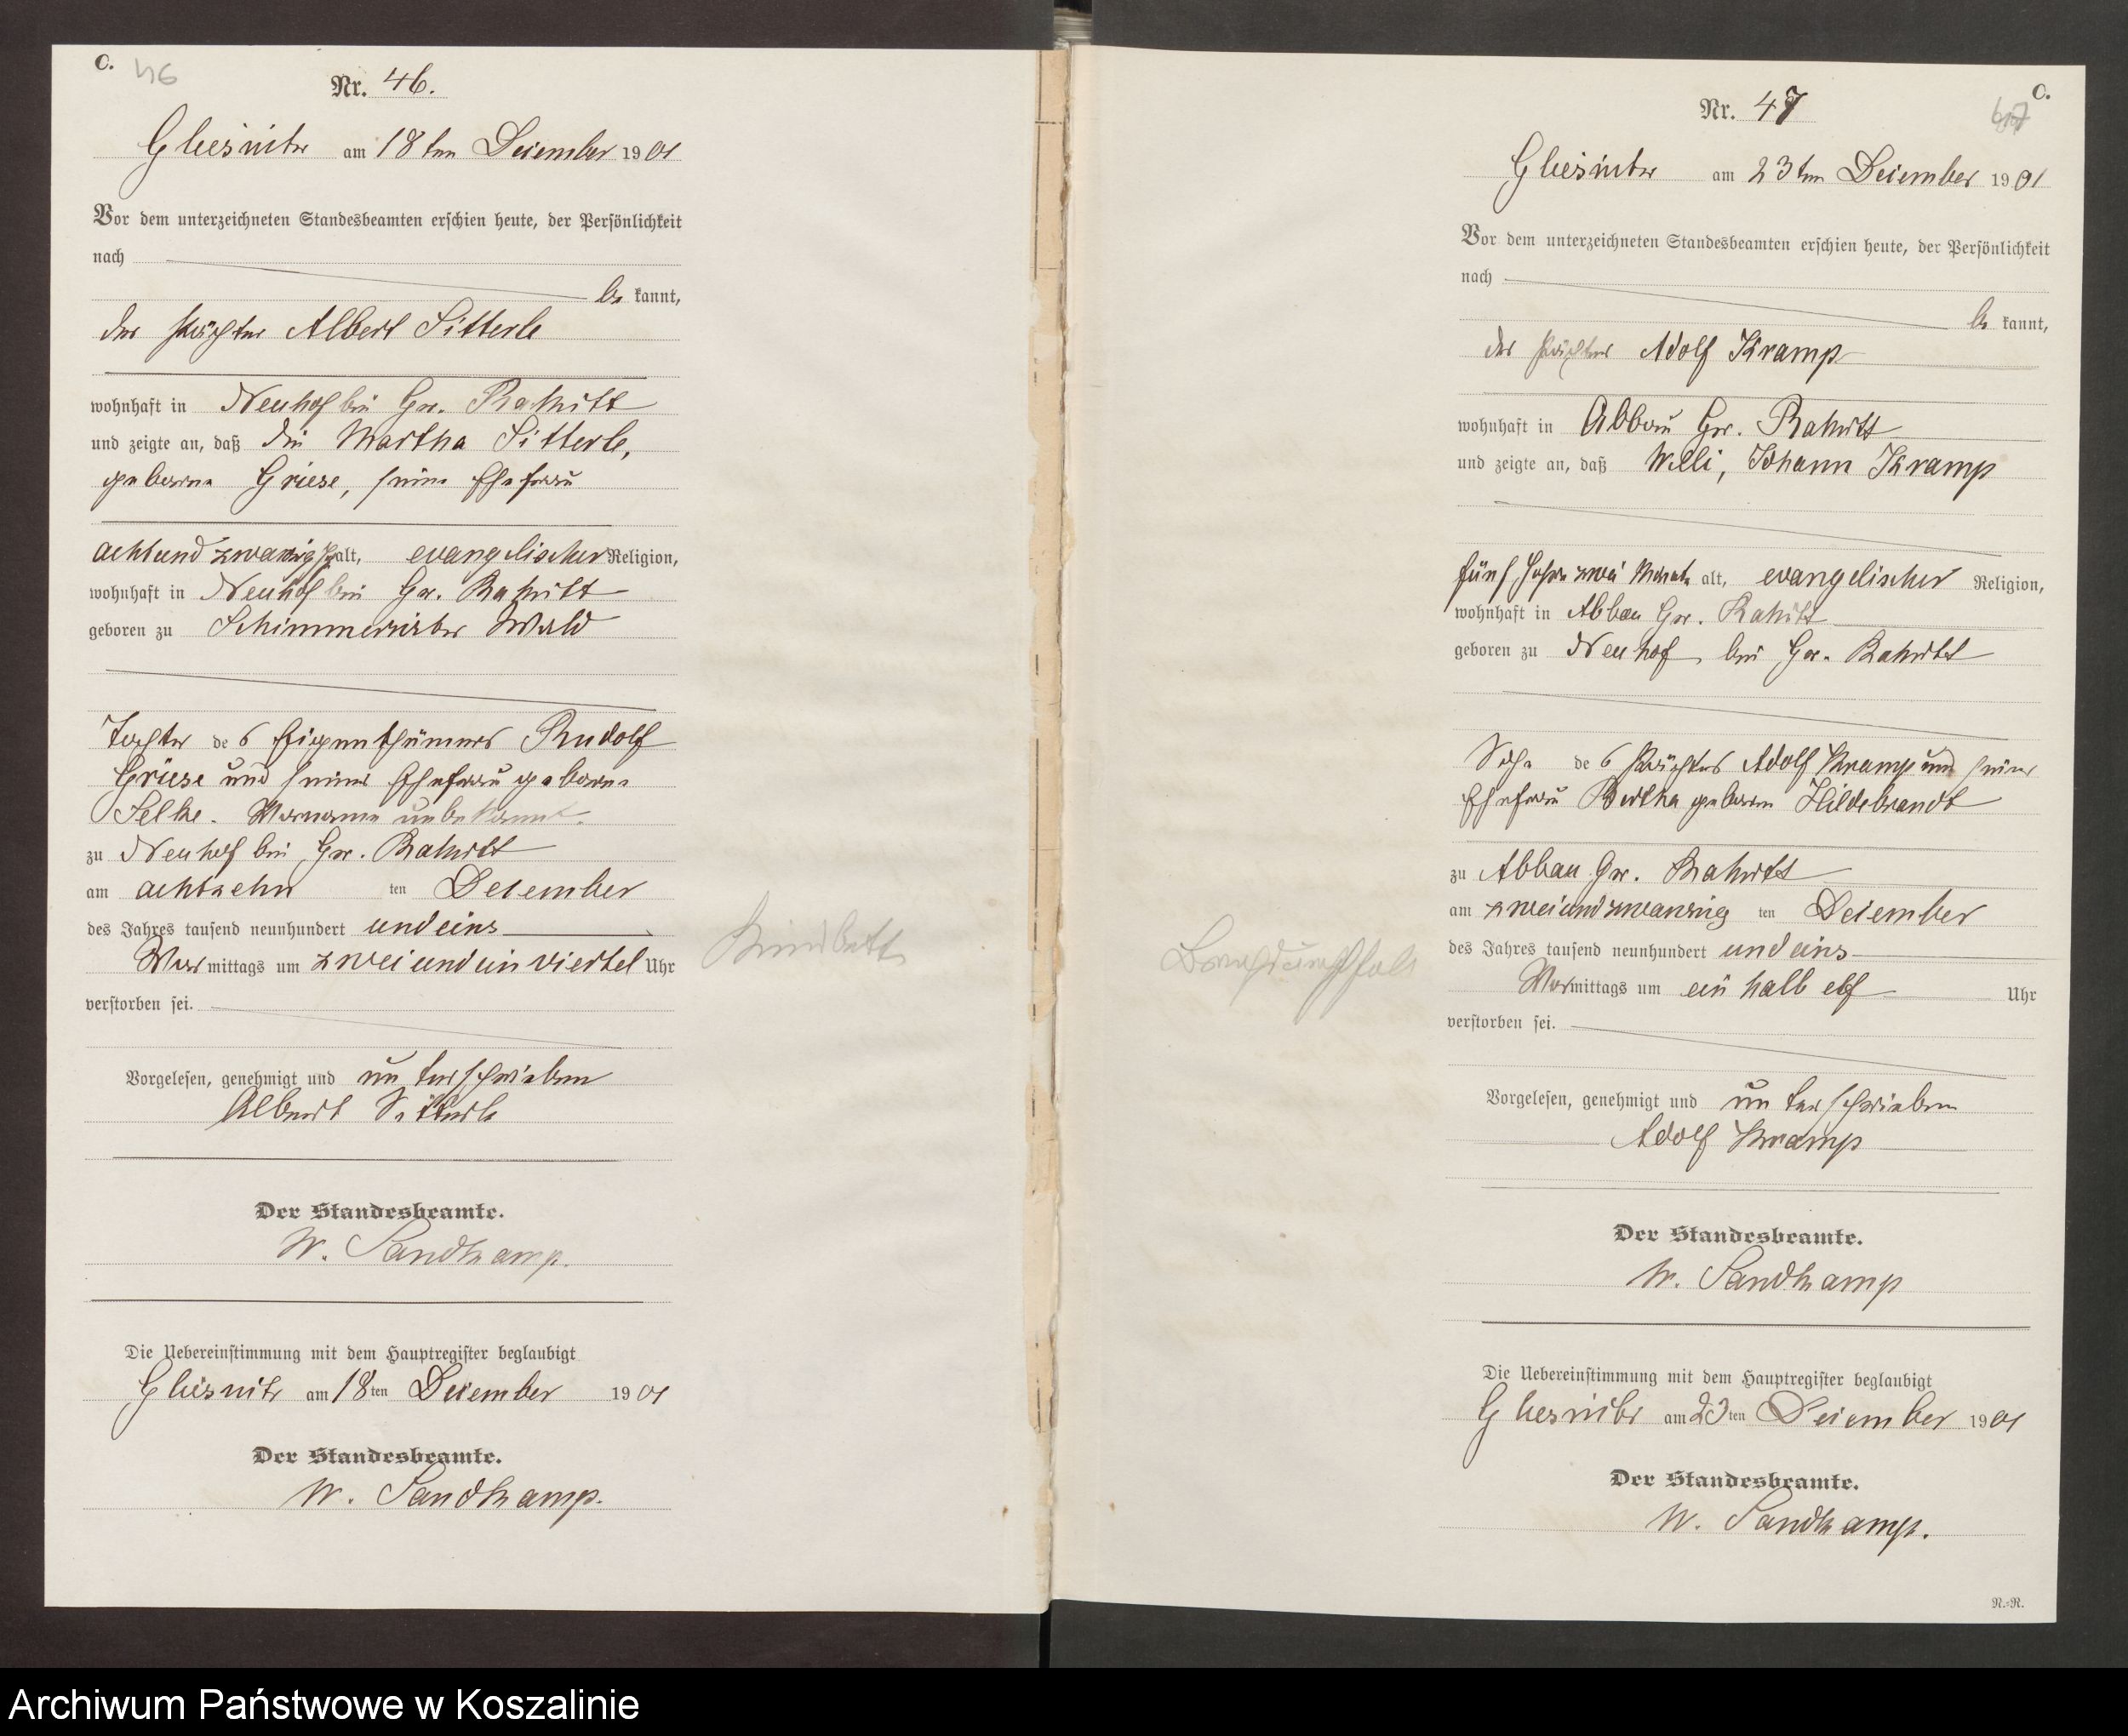 C. 46
Nr. 46.
Gliesnitz am 18ten Dezember 1901
Vor dem unterzeichneten Standesbeamten erschien heute, der Persönlichkeit
nach
be kannt,
der Pächter Albert Sitterle
wohnhaft in Neuhof bei Gr. Rakitt
und zeigte an, daß die Martha Sitterle,
geborne Griese, seine Ehefrau
achtundzwanzig J. alt, evangelischer Religion,
wohnhaft in Neuhof bei Gr. Rakitt
geboren zu Schimmerwitzer Wald
Tochter des Eigenthümers Rudolf
Griese und seiner Ehefrau geborne
Selke. Vorname unbekannt.
zu Neuhof bei Gr. Rakitt
am achtzehn ten Dezember
des Jahres tausend neunhundert und eins
Vormittags um zwei und ein viertel Uhr
verstorben sei.
Vorgelesen, genehmigt und unterschrieben
Albert Sitterle
Der Standesbeamte.
W. Sandkamp.
Die Uebereinstimmung mit dem Hauptregister beglaubigt
Gliesnitz am 18ten Dezember 1901
Der Standesbeamte.
W. Sandkamp.
Kindbett
C.
47
Nr. 47
Gliesnitz am 23ten Dezember 1901
Vor dem unterzeichneten Standesbeamten erschien heute, der Persönlichkeit
nach
be kannt,
der Pächter Adolf Kramp
wohnhaft in Abbau Gr. Rakitt
und zeigte an, daß Willi, Johann Kramp
fünf Jahre zwei Monate alt, evangelischer Religion,
wohnhaft in Abbau Gr. Rakitt
geboren zu Neuhof bei Gr. Rakitt
Sohn des Pächters Adolf Kramp und seiner
Ehefrau Bertha geborne Hildebrandt
zu Abbau Gr. Rakitt
am zweiundzwanzig ten Dezember
des Jahres tausend neunhundert und eins
Vormittags um ein halb elf Uhr
verstorben sei.
Vorgelesen, genehmigt und unterschrieben
Adolf Kramp
Der Standesbeamte.
W. Sandkamp
Die Uebereinstimmung mit dem Hauptregister beglaubigt
Gliesnitz am 23ten Dezember 1901
Der Standesbeamte.
W. Sandkamp.
N.=N.
Archiwum Państwowe w Koszalinie